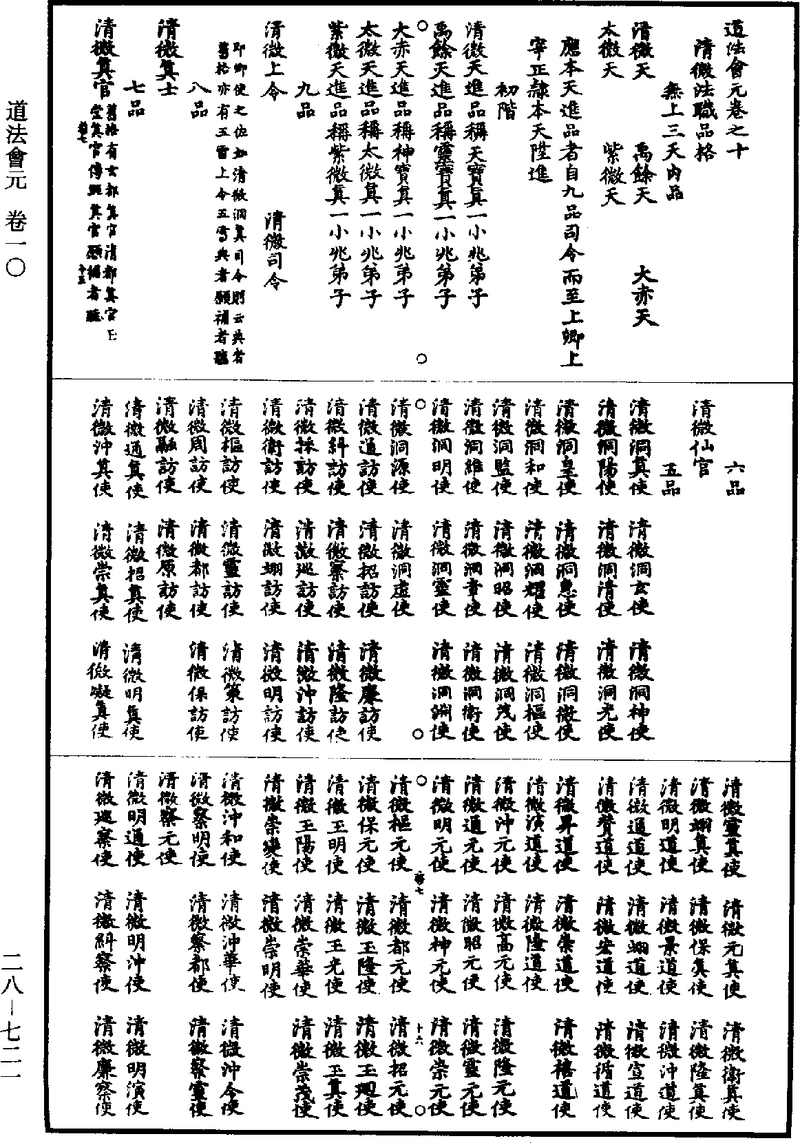 道法會元卷之十
清微法職品格
無上三天內品
清微天 禹餘天 大赤天
太微天 紫微天
應本天進品者自九品司令而至上卿上
宰正隸本天陞進
初階
清微天進品稱天寶真一小兆弟子
禹餘天進品稱靈寶真一小兆弟子
大赤天進品稱神寶真一小兆弟子
太微天進品稱太微真一小兆弟子
紫微天進品稱紫微真一小兆弟子
九品
清微上令 清微司令
即卿使之佐如清微洞真司令則云典者
舊格亦有五雷上令五雷典者願補者聽
八品
清微真士
七品
清微真官
舊格有玄都真官清都真官玉
堂真官傳興真官願補者聽
六品
清微仙官
五品
清微洞真使 清微洞玄使 清微洞神使
清微洞陽使 清微洞清使 清微洞光使
清微洞皇使 清微洞惠使 清微洞微使
清微洞和使 清微洞耀使 清微洞樞使
清微洞監使 清微洞昭使 清微洞茂使
清微洞維使 清微洞章使 清微洞衛使
清微洞明使 清微洞靈使 清微洞淵使
清微洞源使 清微洞虛使
清微通訪使 清微招訪使 清微廉訪使
清微糾訪使 清微察訪使 清微隆訪使
清微採訪使 清微巡訪使 清微沖訪使
清微衛訪使 清微翊訪使 清微明訪使
清微樞訪使 清微靈訪使 清微策訪使
清微周訪使 清微都訪使 清微保訪使
清微融訪使 清微原訪使
清微通真使 清微招真使 清微明真使
清微沖真使 清微崇真使 清微凝真使
清微靈真使 清微元真使 清微衛真使
清微翊真使 清微保真使 清微隆真使
清微明道使 清微景道使 清微沖道使
清微通道使 清微翊道使 清微宣道使
清微贊道使 清微宏道使 清微循道使
清微昇道使 清微崇道使 清微禧道使
清微演道使 清微隆道使
清微沖元使 清微高元使 清微隆元使
清微通元使 清微昭元使 清微靈元使
清微明元使 清微神元使 清微崇元使
清微樞元使 清微都元使 清微招元使
清微保元使 清微玉隆使 清微玉樞使
清微玉明使 清微玉光使 清微玉真使
清微玉陽使 清微崇華使 清微崇茂使
清微崇變使 清微崇明使
清微沖和使 清微沖華使 清微沖令使
清微察明使 清微察都使 清微察靈使
清微察元使
清微明通使 清微明沖使 清微明演使
清微巡察使 清微糾察使 清微廉察使
道法會元 卷一〇
二八—七二一